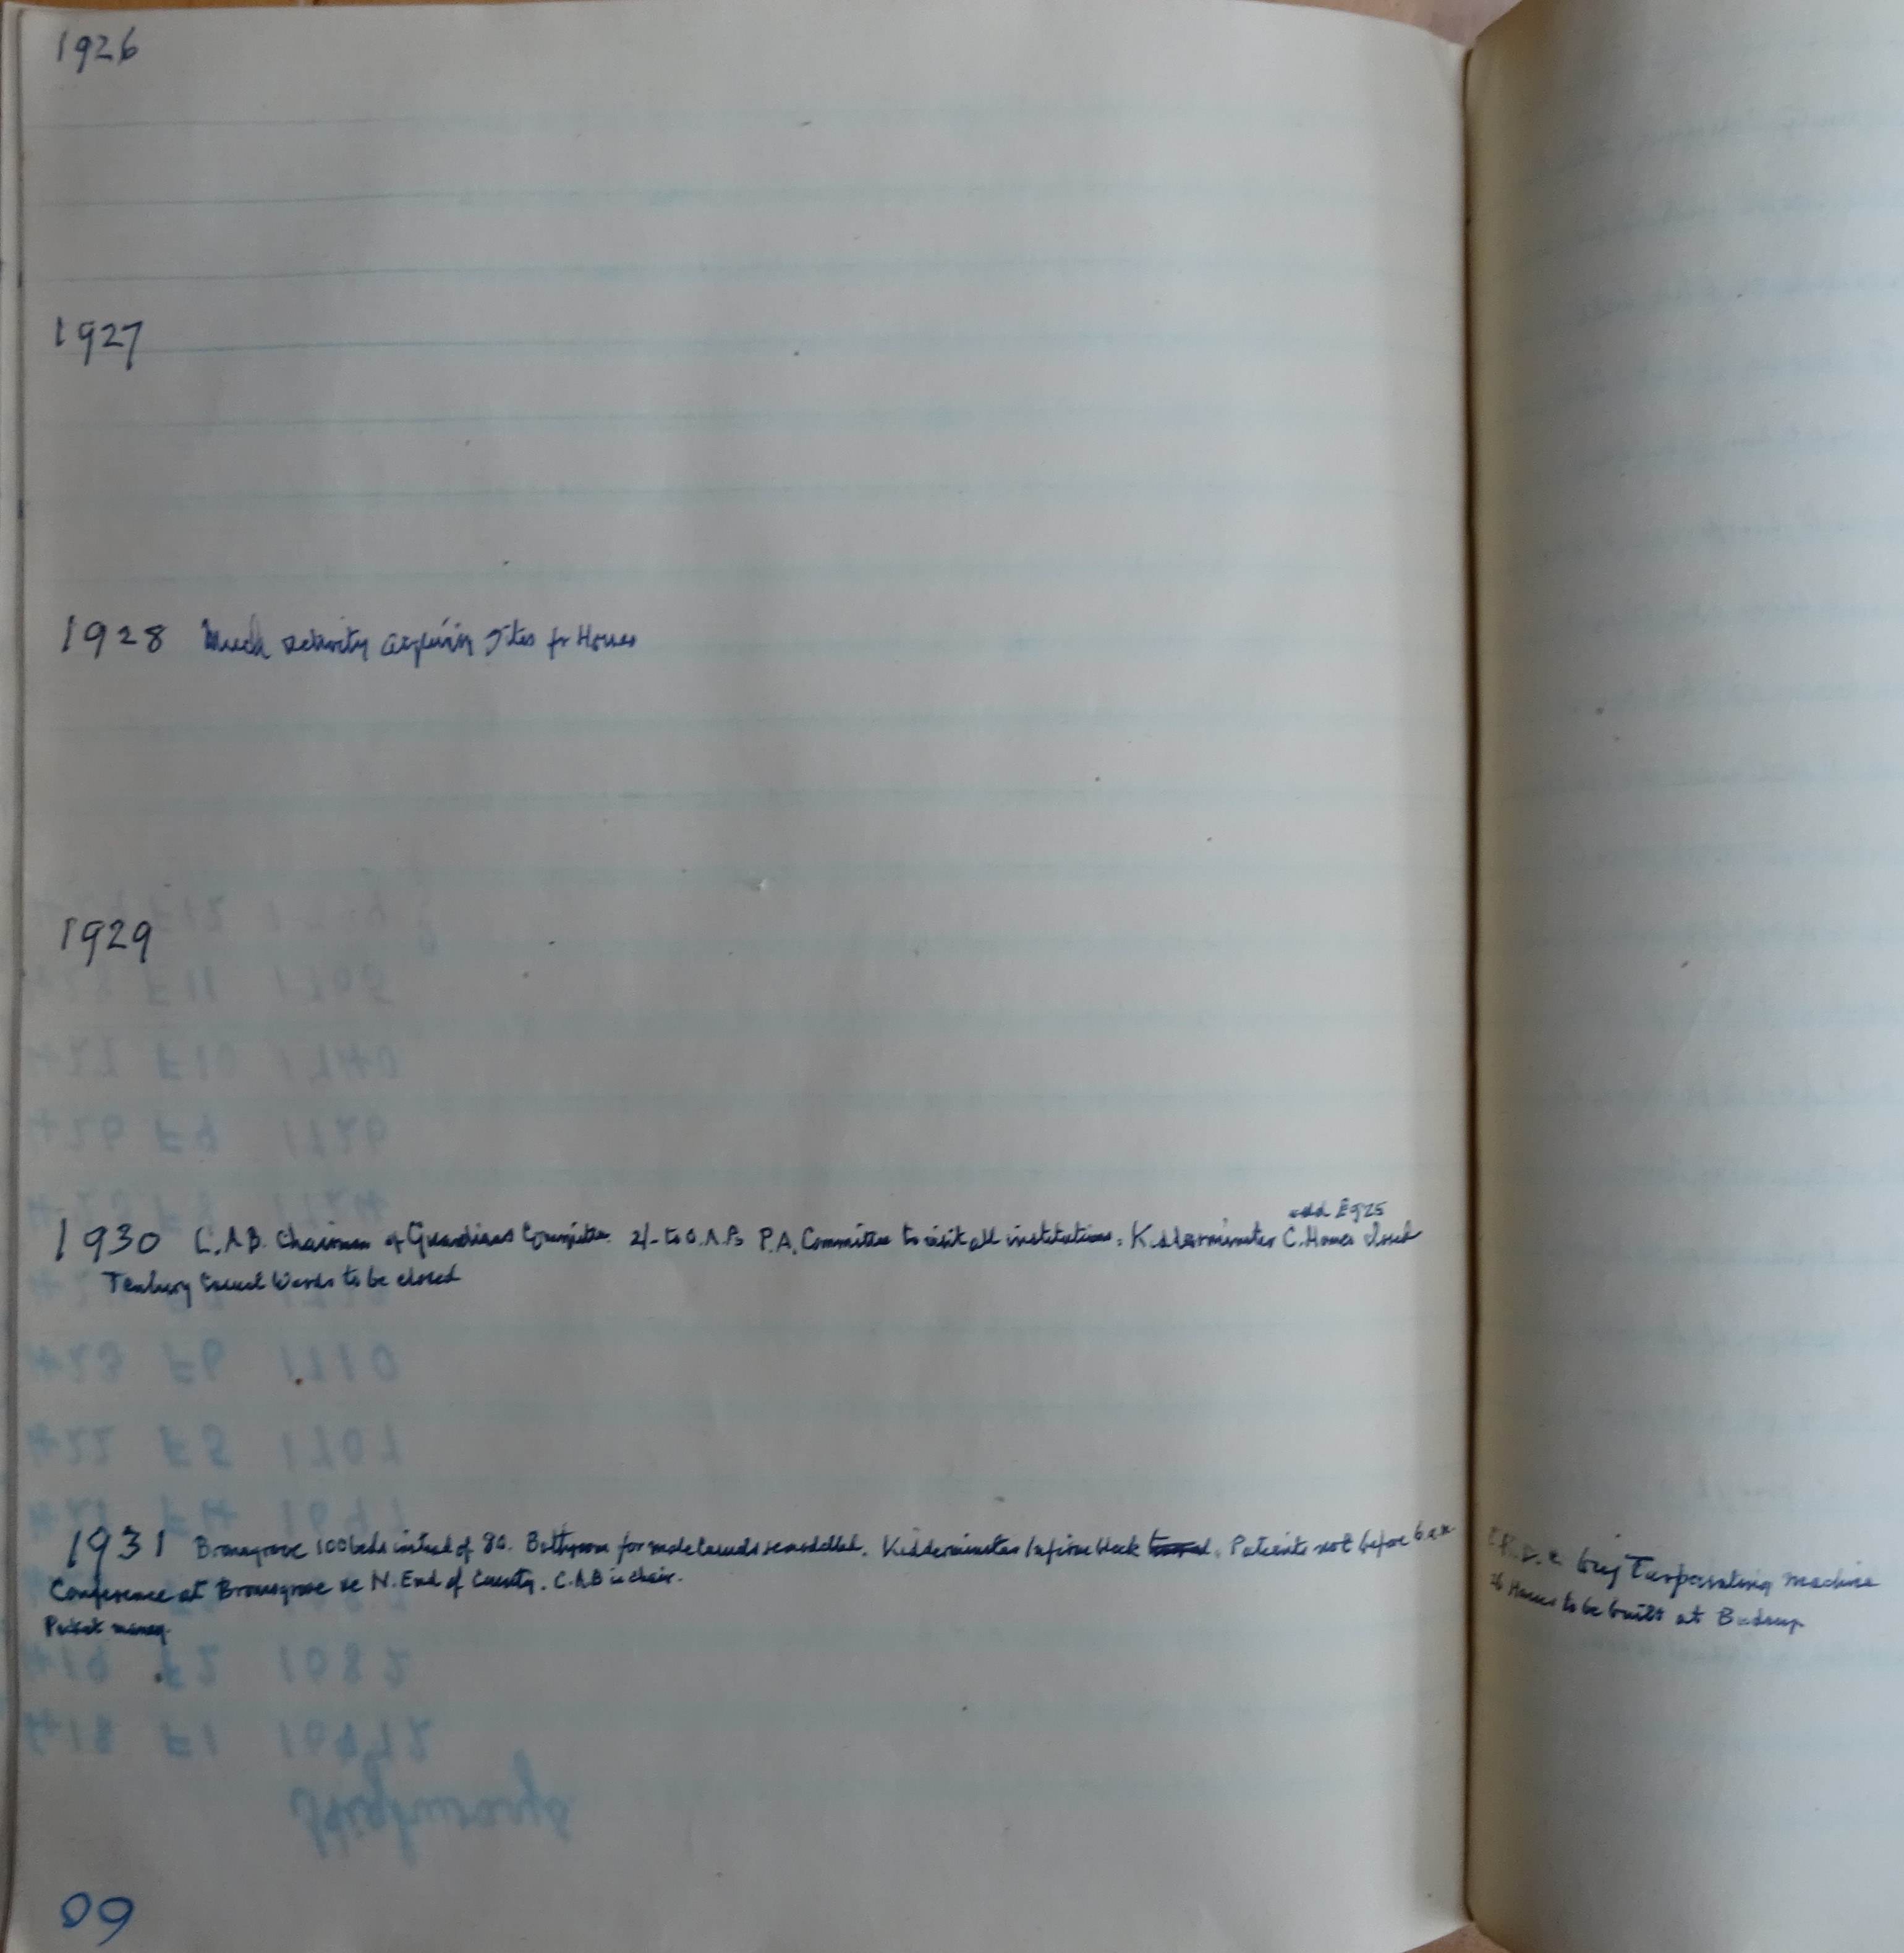 1926
1927
1928 Much activity acquiring sites for Houses
1929
add £925
1930 C.A.B. Chairman of Guardians Committee 2/- to O.A.Ps P.A. Committee to visit all institutions. Kidderminster C. Homes closed
Tenbury Casual Wards to be closed
1931 Bromsgrove 100 beds instead of 80. Bathroom for male casuals remodelled. Kidderminster Infirm block. Patients not before 6 am
Conference at Bromsgrove re N. End of County. C.A.B in chair.
Pocket money.
buy Tarpersaling machine
Houses to be built at
60